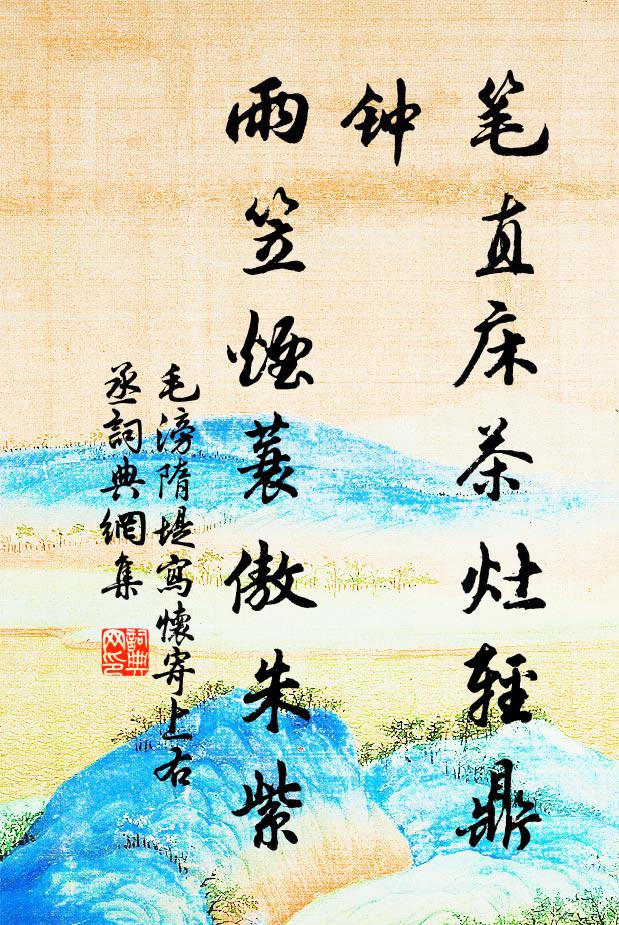 笔直床茶灶輕鼎
钟
雨笠煙蓑傲朱紫
毛滂隋堤寫懷寄上右
丞詞典網集
詞典
网印